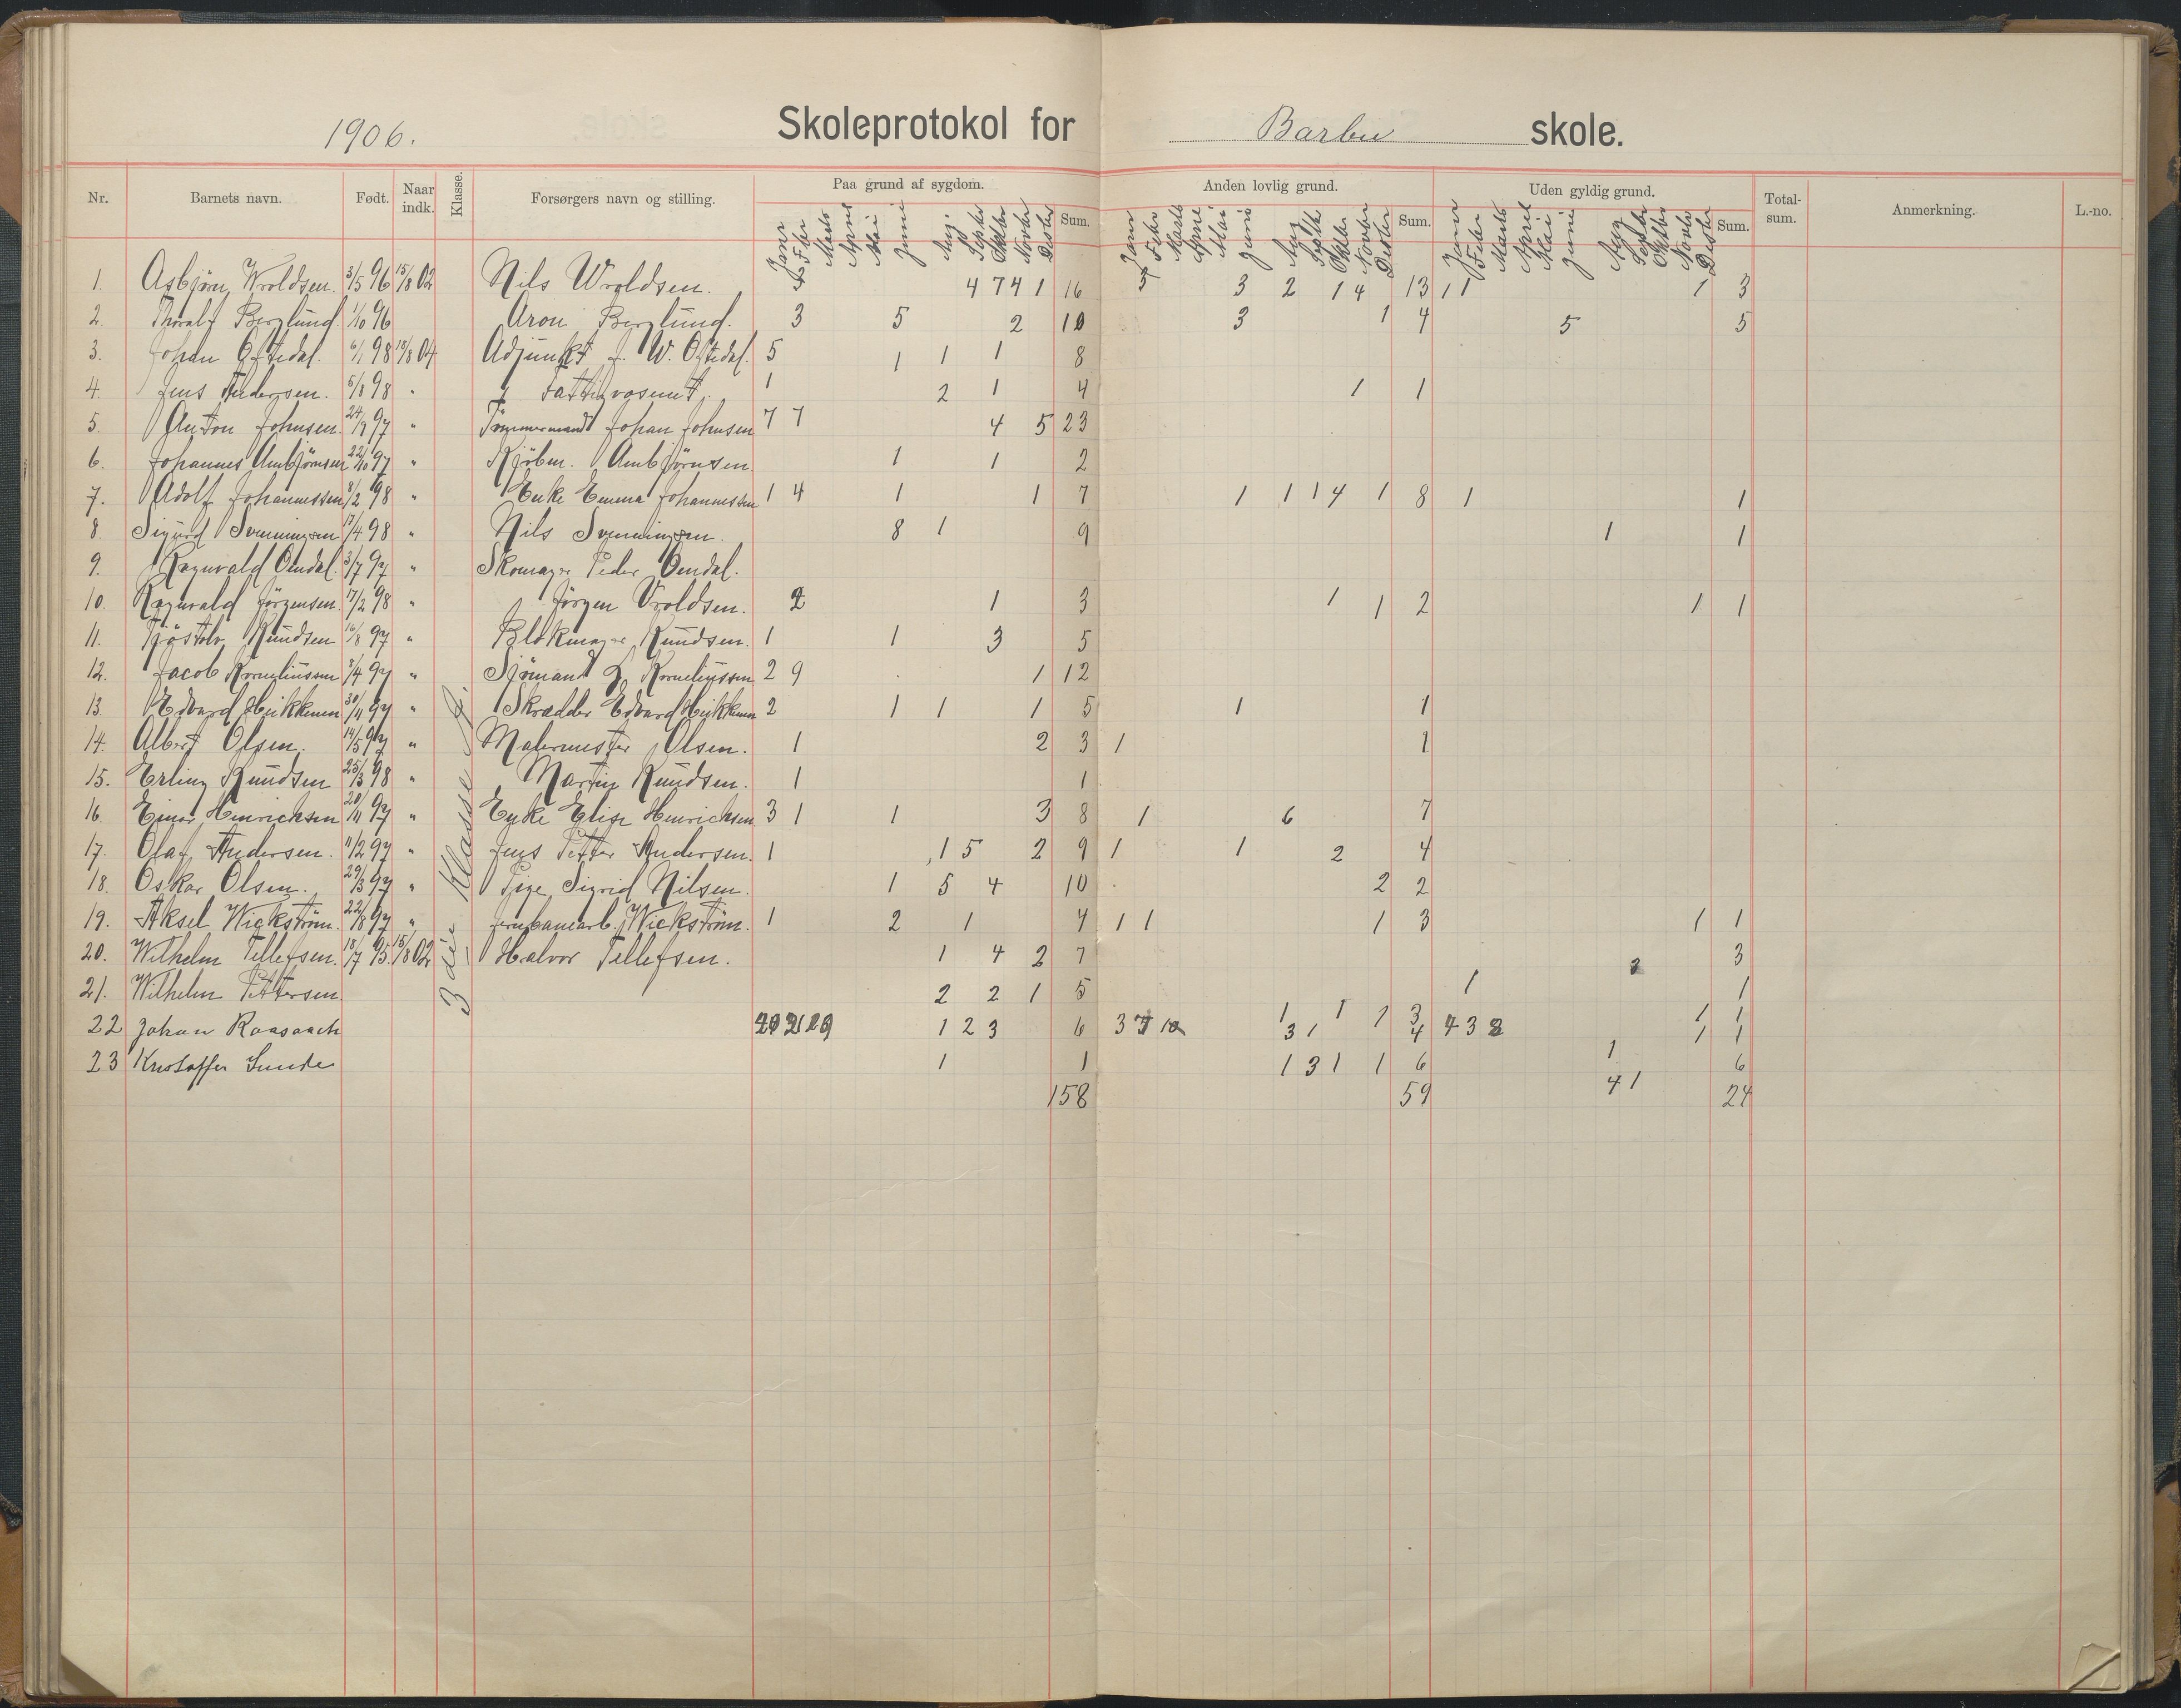 1906. Skoleprotokol for Barbu skole.
Nr. Barnets navn. Født. Naar indk. Klasse. Forsørgers navn og stilling. Paa grund af sygdom. Anden lovlig grund. Uden gyldig grund. Total-sum. Anmerkning. L.-no.
Janr Febr Marts April Mai Juni Aug Septbr Oktbr Novbr Desbr Sum. Janr Febr Marts April Mai Juni Aug Septb Oktbr Novbr Desbr Sum. Janr Febr Marts April Mai Juni Aug Septbr Oktbr Novbr Desbr Sum.
3die Klasse
1. Asbjörn Wroldsen. 3/5 96 15/8 02 Nils Wroldsen. 4 7 4 1 16 3 2 1 4 13 1 1 1 3
2. Thoralf Berglund. 1/10 96 Aron Berglund. 3 5 2 10 3 1 4 5 5
3. Johan Oftedal. 6/1 98 15/8 04 Adjunkt J. W. Oftedal. 5 1 1 1 8
4. Jens Andersen. 5/8 98 " Fattigvæsenet. 1 2 1 4 1 1
5. Anton Johnsen. 24/9 97 " Tömmermand Johan Johnsen 7 7 4 5 23
6. Johannes Ambjörnsen 22/10 97 " Kjöbm. Ambjörnsen. 1 1 2
7. Adolf Johannessen 8/2 98 " Enke Emma Johannessen 1 4 1 1 7 1 1 1 4 1 8 1 1
8. Sigurd Svenningsen 17/4 98 " Nils Svenningsen. 8 1 9 1 1
9. Ragnvald Omdal. 3/7 97 " Skomager Peder Omdal.
10. Ragnvald Jörgensen. 17/2 98 " Jörgen Vroldsen. 2 1 3 1 1 2 1 1
11. Tjöstolv Knudsen 16/8 97 " Blokmager Knudsen. 1 1 3 5
12. Jacob Korneliussen 3/4 97 " Sjömand Korneliussen 2 9 1 12
13. Edvard Heikkenen 30/11 97 " Skrædder Edvard Heikkenen 2 1 1 1 5 1 1
14. Albert Olsen. 14/5 97 " Malermester Olsen. 1 2 3 1 1
15. Erling Knudsen 25/3 98 " Martin Knudsen. 1 1
16. Einar Henrichsen 20/11 97 " Enke Elise Henrichsen 3 1 1 3 8 1 6 7
17. Olaf Andersen. 11/2 97 " Jens Petter Andersen. 1 1 5 2 9 1 1 2 4
18. Oskar Olsen. 29/3 97 " Pige Sigrid Nilsen. 1 5 4 10 2 2
19. Aksel Wickström. 22/8 97 " Jernbanearb. Wickström. 1 2 1 4 1 1 1 3 1 1
20. Wilhelm Tellefsen. 18/7 95. 15/8 02 Halvor Tellefsen. 1 4 2 7 2 3
21. Wilhelm Pettersen. 2 2 1 5 1 1 1 3 1 1
22 Johan Raasaach 1 2 3 6 3 1 4 4 3 2 1 1
23 Kristoffer Sunde 1 1 1 3 1 1 6 1 6
158 59 4 1 24